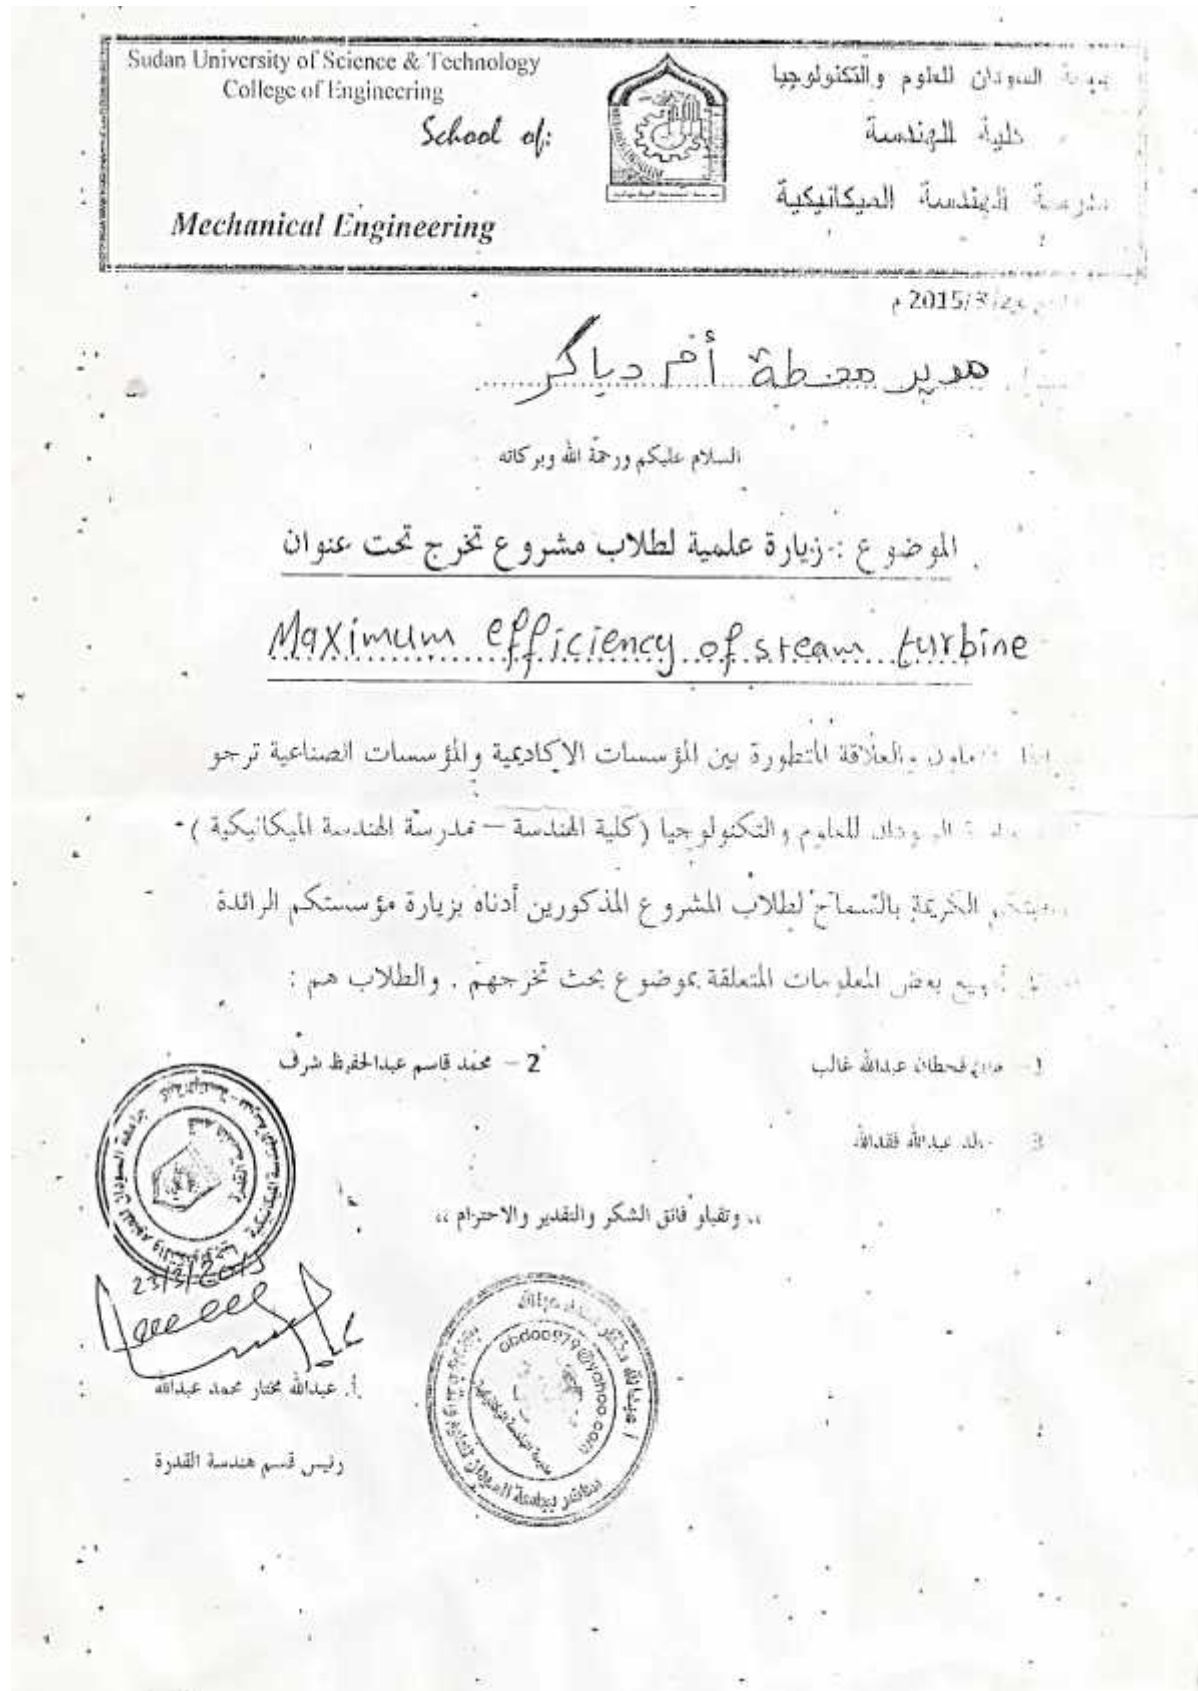 Sudan University of Science & Technology
College of Engineering
School of:
Mechanical Engineering
السودان للعلوم والتكنولوجيا
كلية الهندسة
مدرسة الهندسة الميكانيكية
2015/3/ م
مدير محطة أم دباكر
السلام عليكم ورحمة الله وبركاته
الموضوع :- زيارة علمية لطلاب مشروع تخرج تحت عنوان
Maximum efficiency of steam turbine
والعلاقة المتطورة بين المؤسسات الاكاديمية والمؤسسات الصناعية ترجو
السودان للعلوم والتكنولوجيا (كلية الهندسة – مدرسة الهندسة الميكانيكية ) -
الكريمة بالسماح لطلاب المشروع المذكورين أدناه بزيارة مؤسستكم الرائدة
بعض المعلومات المتعلقة بموضوع بحث تخرجهم . والطلاب هم :
1- قحطان عبدالله غالب
2 – محمد قاسم عبدالحفيظ شرف
3 عبدالله فقدالله
،، وتقبلو فائق الشكر والتقدير والاحترام ،،
جامعة السودان للعلوم والتكنولوجيا
23/3/2015
أ. عبدالله مختار محمد عبدالله
رئيس قسم هندسة القدرة
abdoo979@yahoo.com